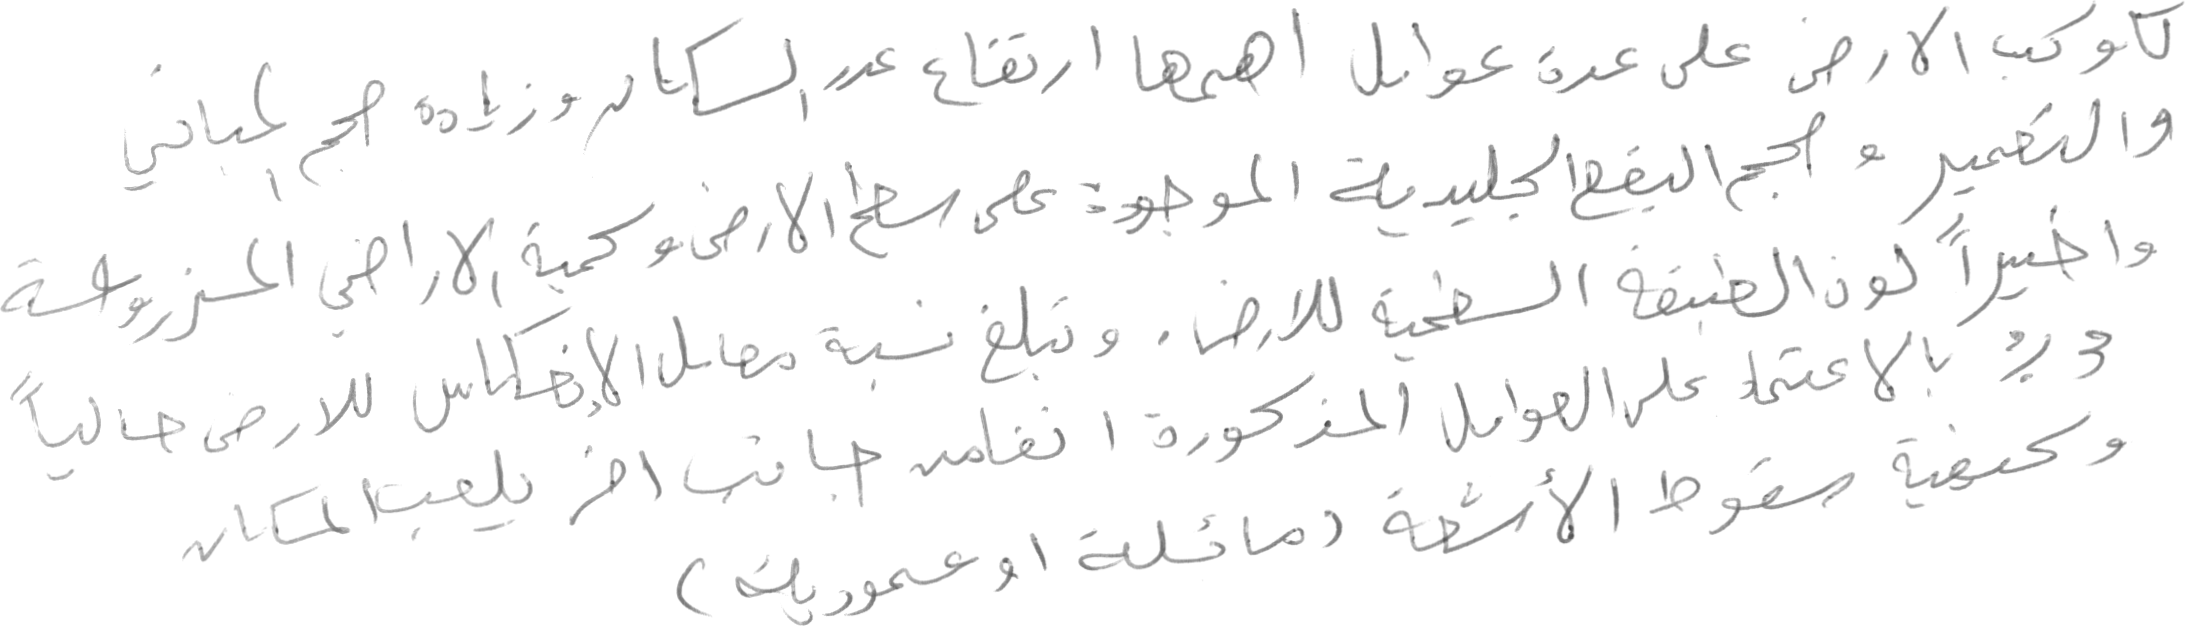 لكوكب الارض على عدة عوامل اهمها ارتفاع عدد السكان وزيادة حجم المباني
والتعمير وحجم البقع الجليدية الموجودة على سطح الارض وكمية الاراضي المزروعة
واخيراً لون الطبقة السطحية للارض. وتبلغ نسبة معامل الانعكاس للارض حالياً
بالاعتماد على العوامل المذكورة انفا من جانب اخر يلعب المكان
وكيفية سقوط الأشعة (مائلة او عمودية)